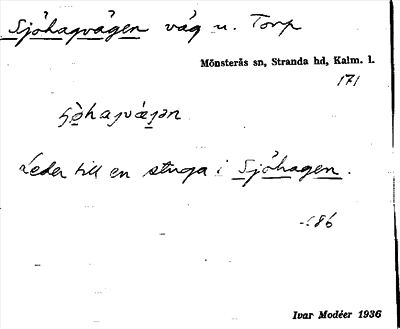 Sjöhagvägen väg u. Torp
Mönsterås sn, Stranda hd, Kalm. l.
171
Leder till en stuga i Sjöhagen.
186
Ivar Modéer 1936